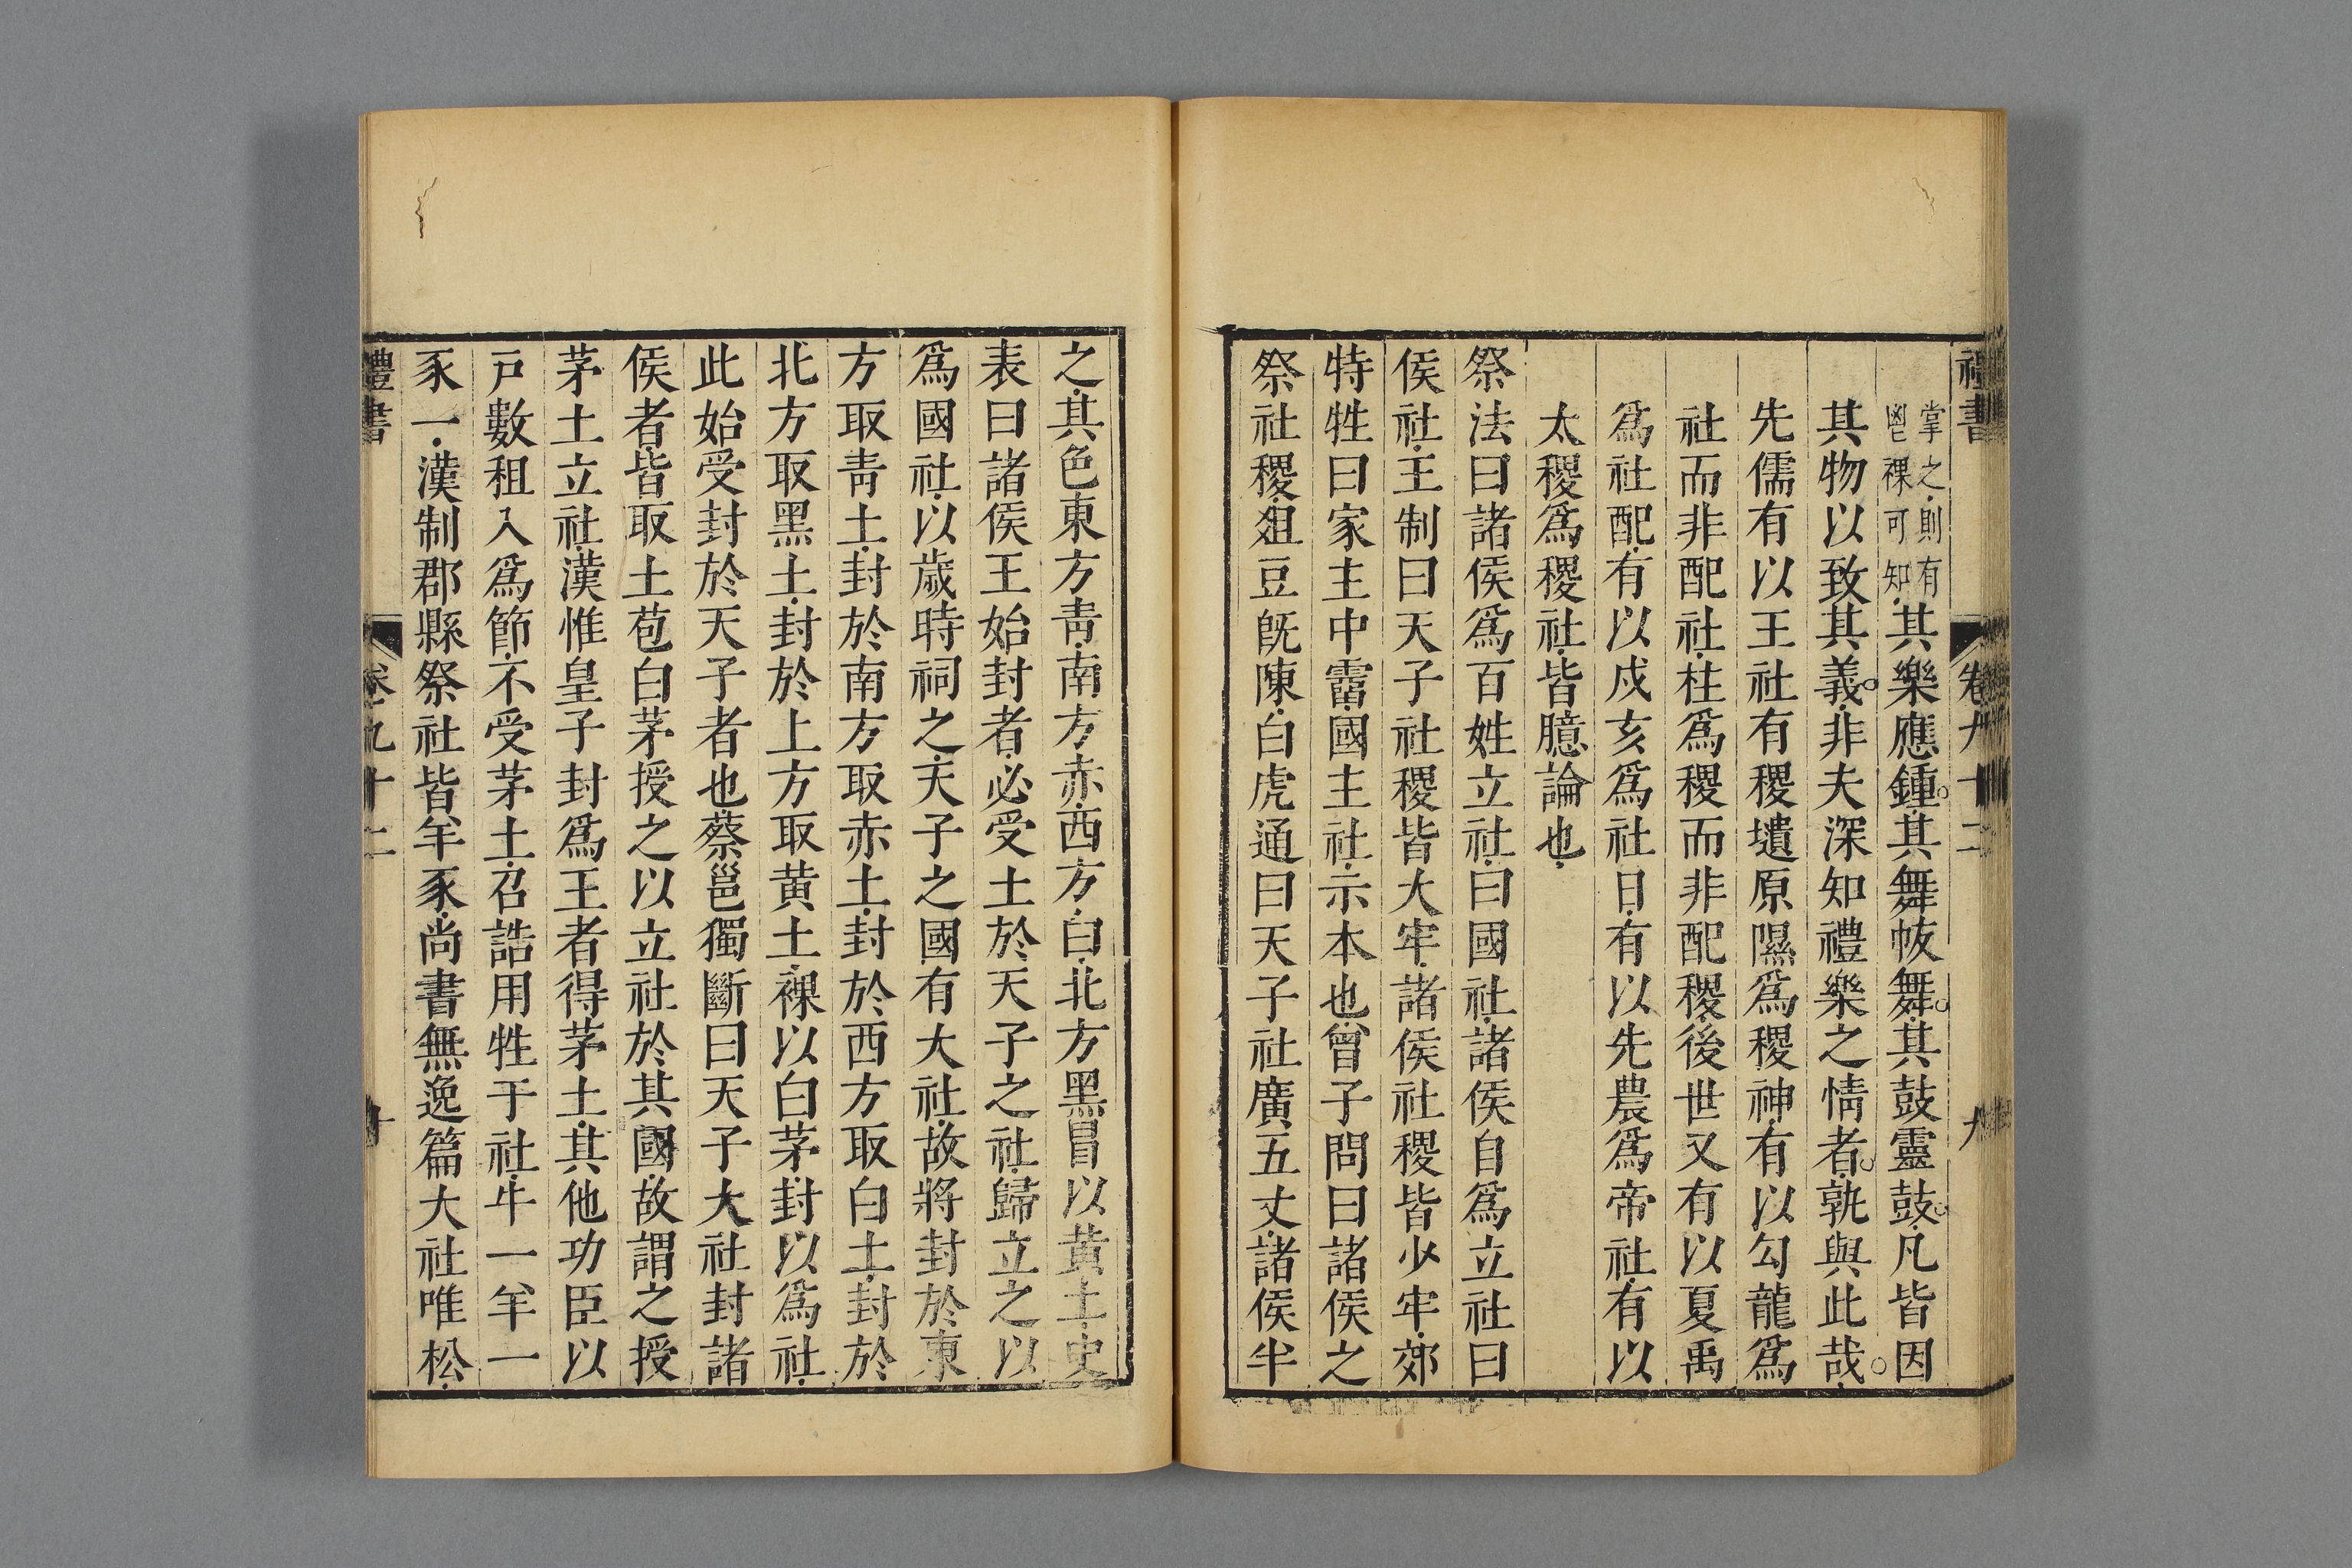 禮書 卷九十二 九
掌之則有鬯祼可知其樂應鍾其舞帗舞其鼓靈鼓凡皆因
其物以致其義非夫深知禮樂之情者孰與此哉
先儒有以王社有稷壝原隰爲稷神有以勾龍爲
社而非配社柱爲稷而非配稷後世又有以夏禹
爲社配有以戌亥爲社日有以先農爲帝社有以
太稷爲稷社皆臆論也
祭法曰諸侯爲百姓立社曰國社諸侯自爲立社曰
侯社王制曰天子社稷皆大牢諸侯社稷皆少牢郊
特牲曰家主中霤國主社示本也曾子問曰諸侯之
祭社稷俎豆旣陳白虎通曰天子社廣五丈諸侯半
之其色東方靑南方赤西方白北方黑冒以黃土史
表曰諸侯王始封者必受土於天子之社歸立之以
爲國社以歲時祠之天子之國有大社故將封於東
方取靑土封於南方取赤土封於西方取白土封於
北方取黑土封於上方取黃土裸以白茅封以爲社
此始受封於天子者也蔡邕獨斷曰天子大社封諸
侯者皆取土苞白茅授之以立社於其國故謂之授
茅土立社漢惟皇子封爲王者得茅土其他功臣以
戸數租入爲節不受茅土召誥用牲于社牛一羊一
豕一漢制郡縣祭社皆羊豕尚書無逸篇大社唯松
禮書 卷九十二 十